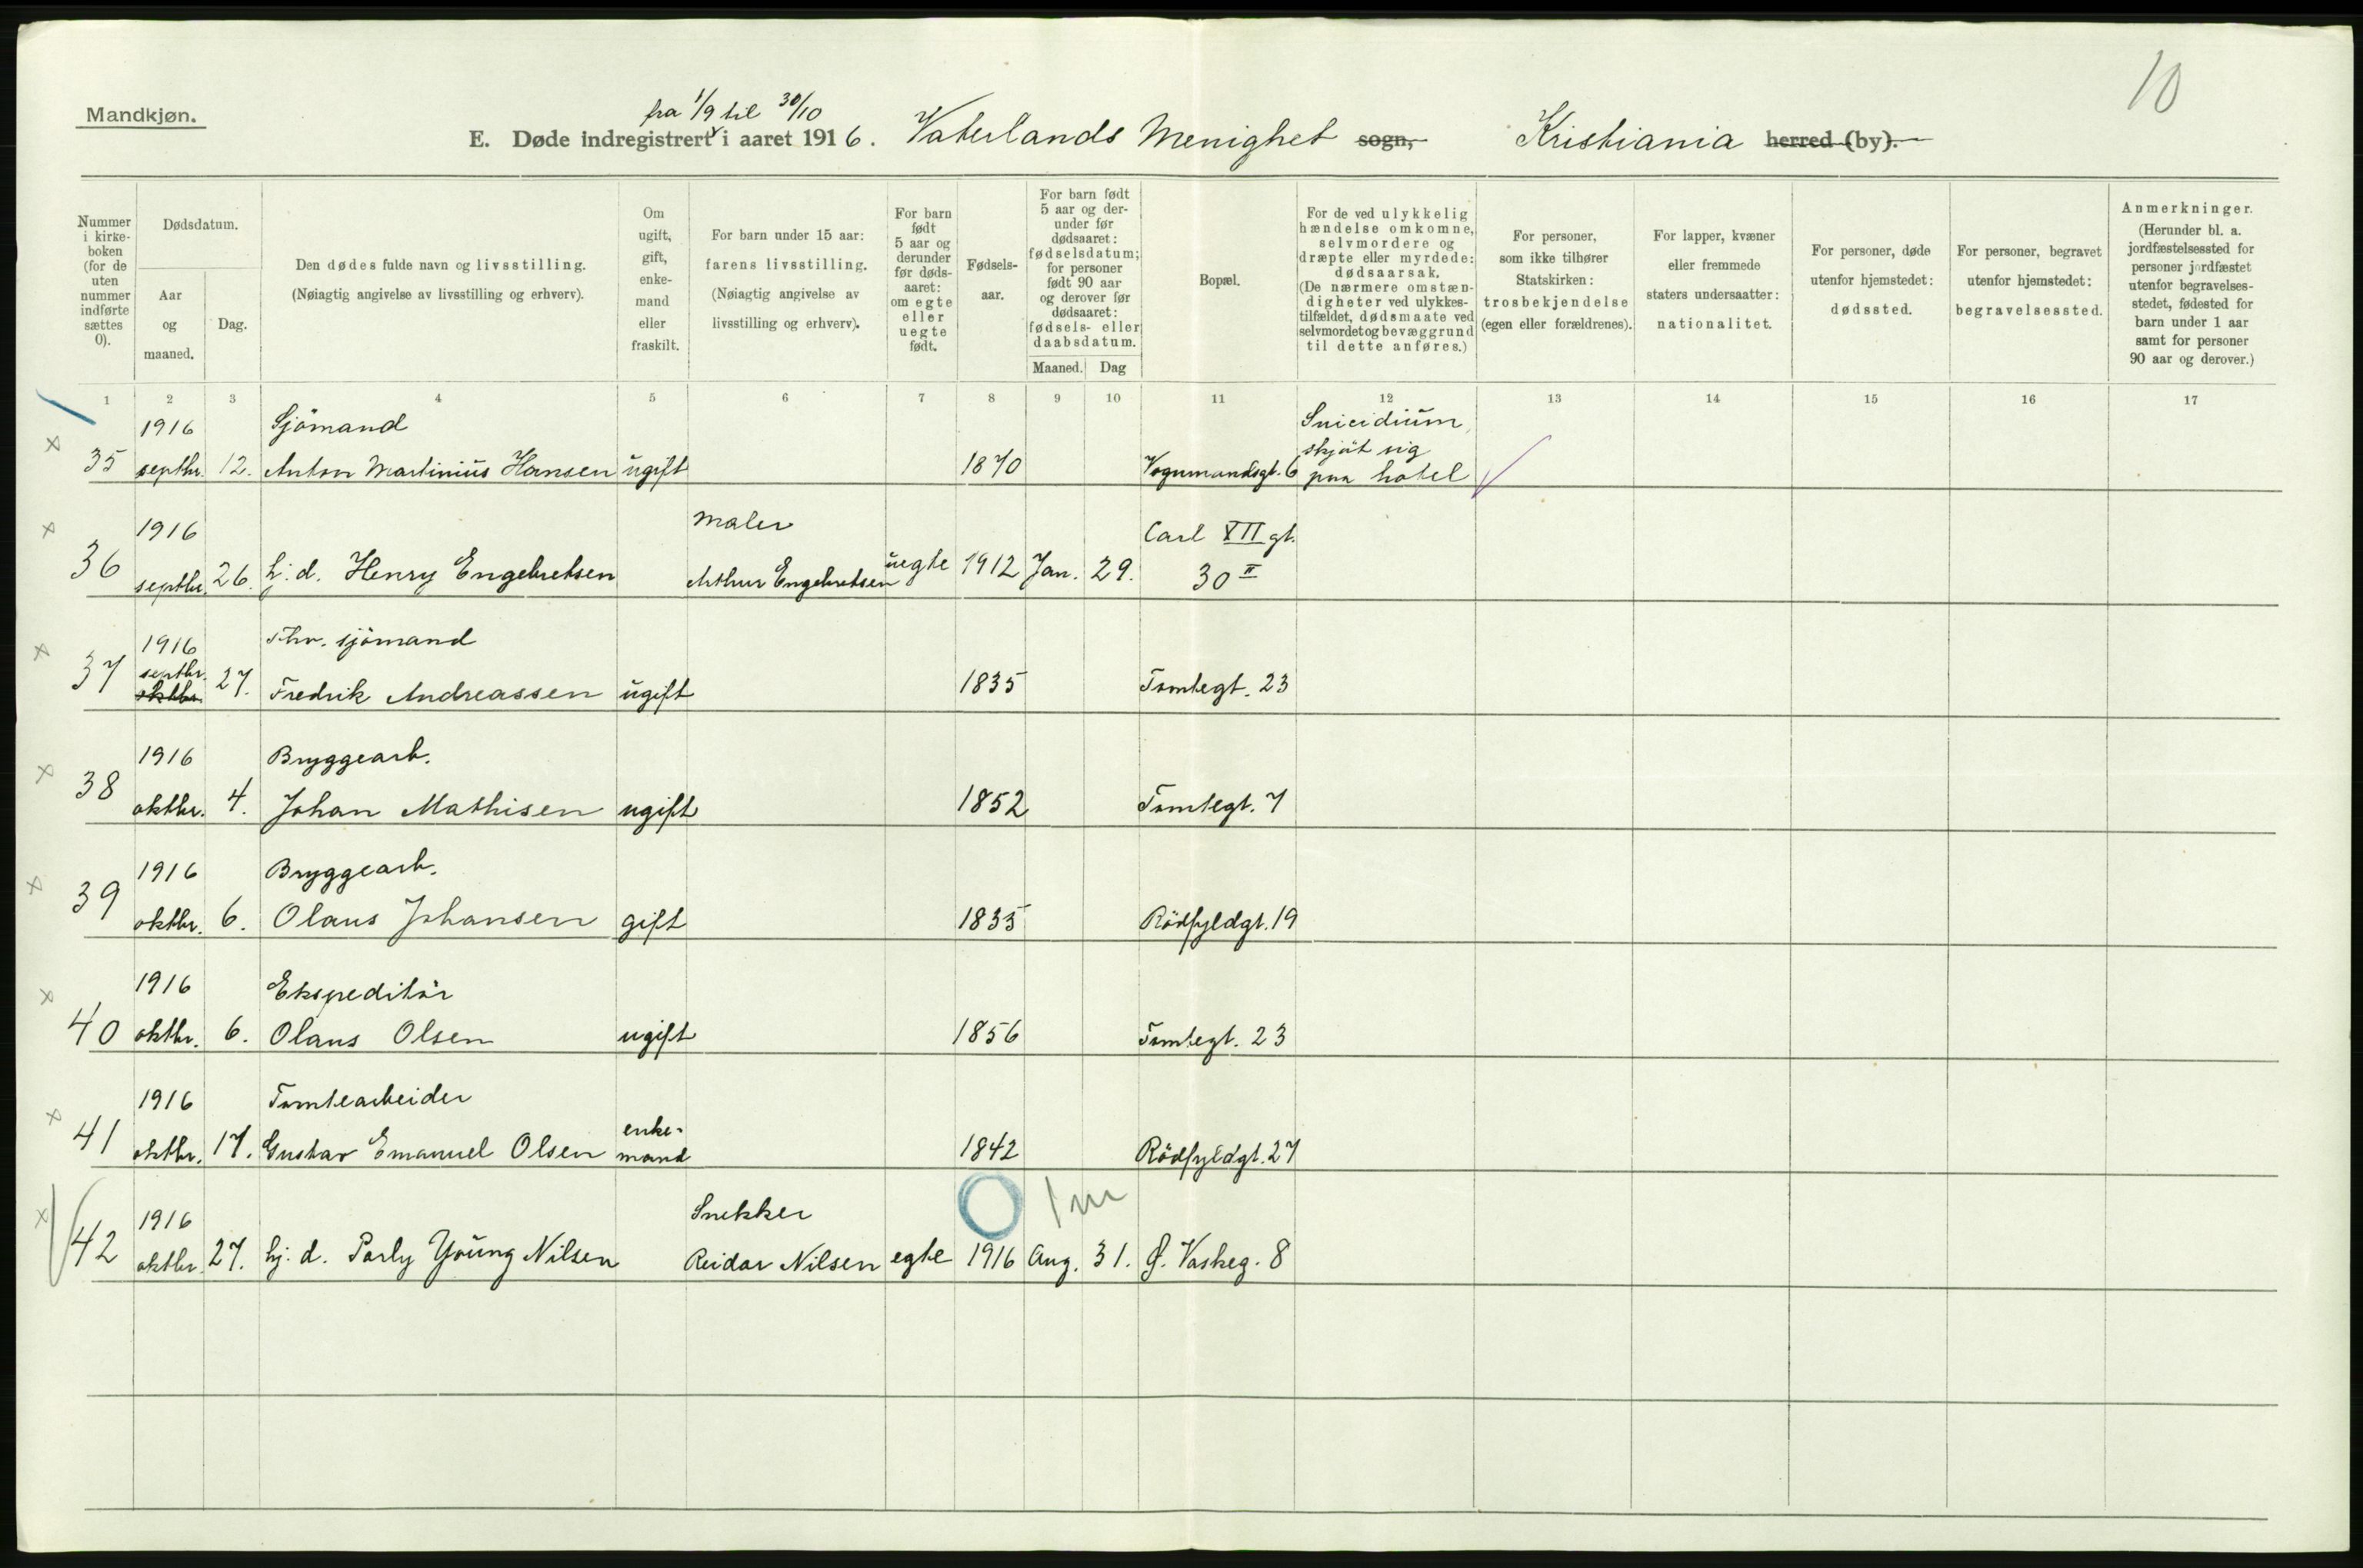 10
Mandkjøn.
fra 1/9 til 30/10
E. Døde indregistrert i aaret 1916. Vaterlands Menighet sogn, Kristiania herred (by).
Nummer i kirke-boken (for de uten nummer indførte sættes 0).
Dødsdatum.
Aar og maaned.
Dag.
Den dødes fulde navn og livsstilling.
(Nøiagtig angivelse av livsstilling og erhverv).
Om ugift, gift, enke-mand eller fraskilt.
For barn under 15 aar: farens livsstilling. (Nøiagtig angivelse av livsstilling og erhverv).
For barn født 5 aar og derunder før døds-aaret: om egte eller uegte født.
Fødsels-aar.
For barn født 5 aar og der-under før dødsaaret: fødselsdatum; for personer født 90 aar og derover før dødsaaret: fødsels- eller daabsdatum.
Maaned. Dag
Bopæl.
For de ved ulykkelig hændelse omkomne, selvmordere og dræpte eller myrdede: dødsaarsak. (De nærmere omstæn-digheter ved ulykkes-tilfældet, dødsmaate ved selvmordet og bevæggrund til dette anføres.)
For personer, som ikke tilhører Statskirken: trosbekjendelse (egen eller forældrenes).
For lapper, kvæner eller fremmede staters undersaatter: nationalitet.
For personer, døde utenfor hjemstedet: dødssted.
For personer, begravet utenfor hjemstedet: begravelsessted.
Anmerkninger. (Herunder bl. a. jordfæstelsessted for personer jordfæstet utenfor begravelses-stedet, fødested for barn under 1 aar samt for personer 90 aar og derover.)
1 2 3 4 5 6 7 8 9 10 11 12 13 14 15 16 17
1916 Sjömand Suicidium,
skjöt sig
35 septbr. 12. Anton Martinius Hansen ugift 1870 Vognmandsgt. 6 paa hotel
1916 Maler Carl XII gt.
36 septbr. 26. hj. d. Henry Engebretsen Arthur Engebretsen uegte 1912 Jan. 29. 30 II
1916 Fhv. sjömand
septbr.
37 oktbr. 27. Fredrik Andreassen ugift 1835 Tomtegt. 23
1916 Bryggearb.
38 oktbr. 4. Johan Mathisen ugift 1852 Tomtegt. 7
1916 Bryggearb.
39 oktbr. 6. Olaus Johansen gift 1835 Rödfyldgt. 19
1916 Ekspeditör
40 oktbr. 6. Olaus Olsen ugift 1856 Tomtegt. 23
1916 Tomtearbeider
enke-
41 oktbr. 17. Gustav Emanuel Olsen mand 1842 Rödfyldgt. 27
1 m
1916 Snekker
42 oktbr. 27. hj. d. Parly Young Nilsen Reidar Nilsen egte 1916 Aug. 31. Ø. Vaskeg. 8